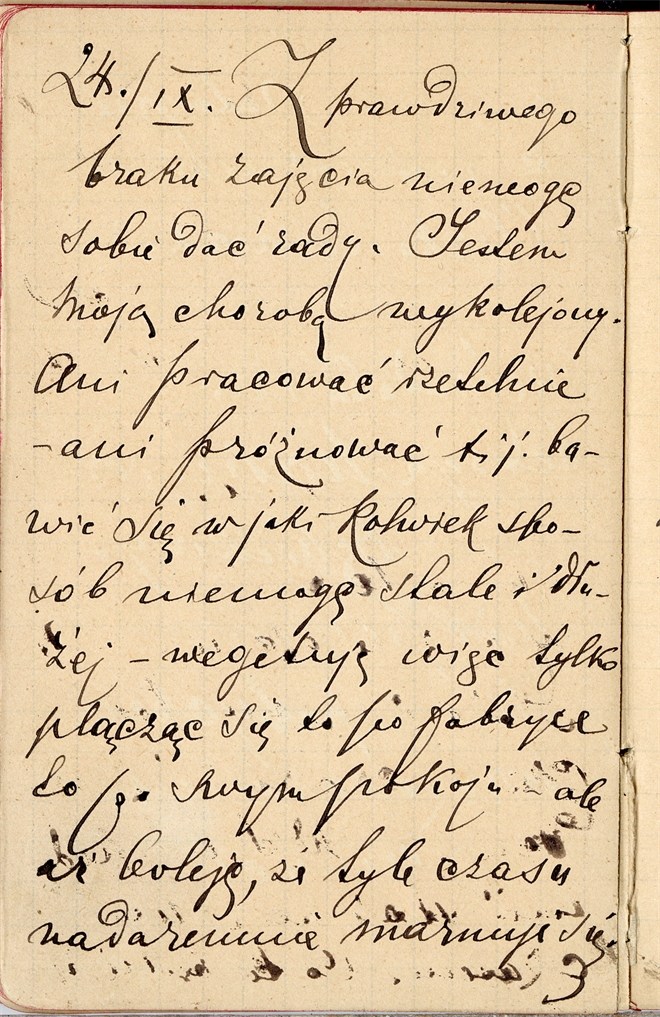 24./IX. Z prawdziwego
braku zajęcia niemogę
sobie dać rady. Jestem
moją chorobą wykolejony.
Ani pracować rzetelnie
-ani próżnować t.j. ba-
wić się w jaki kolwiek spo-
sób niemogę stale i dłu-
żej - wegetuję więc tylko
plącząc się to po fabryce
to po swym pokoju ale
boleję, że tyle czasu
nadaremnie marnuje się.